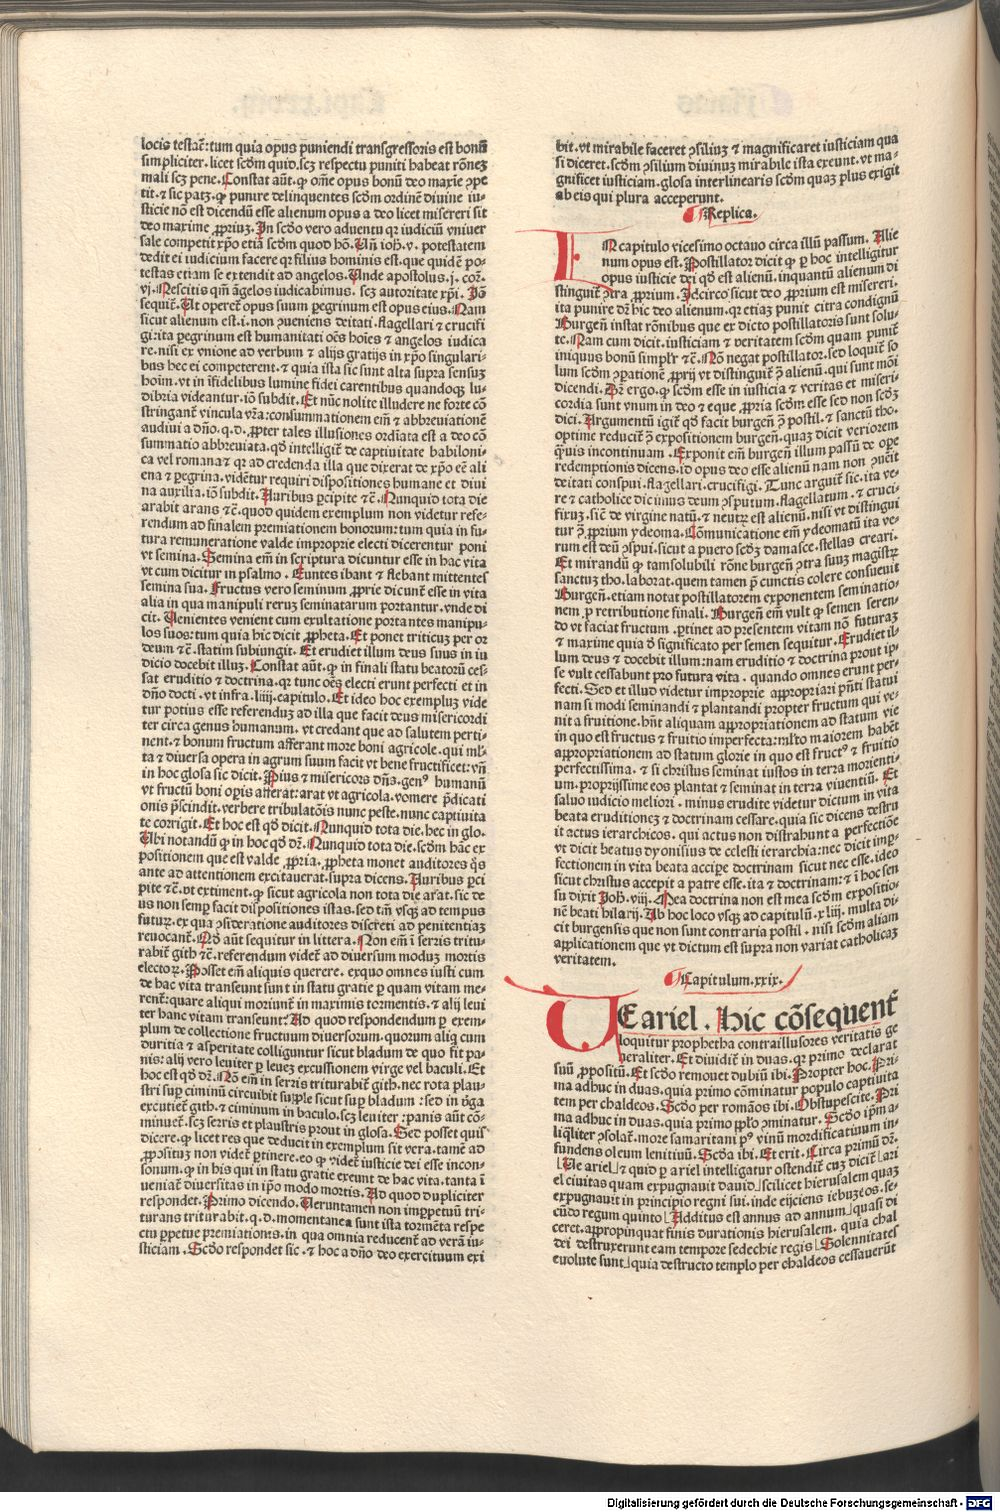 locis testat̄: tum quia opus puniendi transgressoris est bonū
simpliciter. licet scd̄m quid. scꝫ respectu puniti habeat rōneꝫ
mali scꝫ pene. Constat aūt. ꝙ om̄e opus bonū deo maxīe ꝯpe
tit. ⁊ sic patꝫ. ꝙ punire delinquentes scd̄m ordinē divine iu-
sticie nō est dicendū esse alienum opus a deo licet misereri sit
deo maxime ꝓpriuꝫ. In scd̄o vero aduentu qꝛ iudiciū vniuer
sale competit xp̄o etiā scd̄m quod hō. Vn̄ ioh̄. v. potestatem
dedit ei iudicium facere qꝛ filius hominis est. que quidē po-
testas etiam se extendit ad angelos. Vnde apostolus. j. coꝝ.
vj. Nescitis qm̄ āgelos iudicabimus. scꝫ autoritate xp̄i. Iō
sequit̄. Vt operet̄ opus suum ꝑegrinum est opus eius. Nam
sicut alienum est. i. non ꝯueniens deitati. flagellari ⁊ crucifi
gi: ita ꝑegrinum est humanitati oēs hoīes ⁊ angelos iudica
re. nisi ex vnione ad verbum ⁊ alijs gratijs in xp̄o singulari-
bus hec ei competerent. ⁊ quia ista sic sunt alta supra sensuꝫ
hoīm. vt in īfidelibus lumine fidei carentibus quandoqꝫ lu-
dibria videantur. iō subdit. Et nūc nolite illudere ne forte cō
stringant̄ vincula vr̄a: consummationem em̄ ⁊ abbreviationē
audiui a dn̄o. q. d. ꝓpter tales illusiones ordīata est a deo cō
summatio abbreviata. qd̄ intelligit̄ de captiuitate babiloni-
ca vel romana ⁊ qꝛ ad credenda illa que dixerat de xp̄o eē ali
ena ⁊ ꝑegrina. videt̄ur requiri dispositiones humane et diui
na auxilia. iō subdit. Auribus ꝑcipite ⁊c̄. Nunquid tota die
arabit arans ⁊c̄. quod quidem exemplum non videtur refe-
rendum ad finalem premiationem bonorum: tum quia in fu-
tura remuneratione valde improprie electi dicerentur poni
vt semina. Semina em̄ in scriptura dicuntur esse in hac vita
vt cum dicitur in psalmo. Euntes ibant ⁊ flebant mittentes
semina sua. Fructus vero seminum ꝓprie dicunt̄ esse in vita
alia in qua manipuli reruꝫ seminatarum portantur. vnde di
cit. Venientes venient cum exultatione portantes manipu-
los suos: tum quia hic dicit ꝓpheta. Et ponet triticuꝫ per or
deum ⁊c̄. statim subiungit. Et erudiet illum deus suus in iu
dicio docebit illuꝫ. Constat aūt. ꝙ in finali statu beatorū ces-
sat eruditio ⁊ doctrina. qꝛ tunc oēs electi erunt perfecti et in
dn̄o docti. vt infra. liiij. capitulo. Et ideo hoc exempluꝫ vide
tur potius esse referenduꝫ ad illa que facit deus misericordi
ter circa genus humanum. vt credant que ad salutem perti-
nent. ⁊ bonum fructum afferant more boni agricole. qui ml̄-
ta ⁊ diuersa opera in agrum suum facit vt bene fructificet: vn̄
in hoc glosa sic dicit. Pius ⁊ misericors dn̄s. genꝰ humanū
vt fructū boni oꝑis afferat: arat vt agricola. vomere p̄dicati
onis p̄scindit. verbere tribulatōis nunc peste. nunc captiuita
te corrigit. Et hoc est qd̄ dicit. Nunquid tota die. hec in glo.
Vbi notandū ꝙ in hoc qd̄ dꝛ̄. Nunquid tota die. scd̄m hāc ex
positionem que est valde ꝓpria. ꝓpheta monet auditores qͦs
ante ad attentionem excitauerat. supra dicens. Auribus ꝑci
pite ⁊c̄. vt extiment. ꝙ sicut agricola non tota die arat. sic de
us non semꝑ facit dispositiones istas. sed tm̄ vsqꝫ ad tempus
futuꝝ. ex qua ꝯsideratione auditores discreti ad penitentiaꝫ
reuocant̄. Qd̄ aūt sequitur in littera. Non em̄ ī serris tritu-
rabit̄ gith ⁊c̄. referendum videt̄ ad diuersum moduꝫ mortis
electoꝝ. Posset em̄ aliquis querere. exquo omnes iusti cum
de hac vita transeunt sunt in statu gratie ꝑ quam vitam me-
rent̄: quare aliqui moriunt̄ in maximis tormentis. ⁊ alij leui
ter hanc vitam transeunt: Ad quod respondendum ꝑ exem-
plum de collectione fructuum diuersorum. quorum aliqͥ cum
duritia ⁊ asperitate colliguntur sicut bladum de quo fit pa-
nis: alij vero leuiter ꝑ leueꝫ excussionem virge vel baculi. Et
hoc est qd̄ dꝛ̄. Nō em̄ in serris triturabit̄ gith. nec rota plau-
stri suꝑ ciminū circuibit supple sicut suꝑ bladum: sed in v̄ga
excutiet̄ gith. ⁊ ciminum in baculo. scꝫ leuiter: panis aūt cō-
minuet̄. scꝫ serris et plaustris prout in glosa. Sed posset quis
dicere. ꝙ licet res que deducit in exemplum sit vera. tamē ad
ꝓpositum non videt̄ ꝑtinere. eo ꝙ videt̄ iusticie dei esse incon-
sonum. ꝙ in his qui in statu gratie exeunt de hac vita. tanta ī
veniat̄ diuersitas in ip̄o modo mortis. Ad quod dupliciter
respondet. Primo dicendo. Veruntamen non imꝑpetuū tri-
turans triturabit. q. d. momentanea sunt ista tormēta respe
ctu ꝑpetue premiationis. in qua omnia reducent̄ ad verā iu-
sticiam. Scd̄o respondet sic. ⁊ hoc a dn̄o deo exercituum exi
bit. vt mirabile faceret ꝯsiliuꝫ ⁊ magnificaret iusticiam qua
si diceret. scd̄m ꝯsilium diuinuꝫ mirabile ista exeunt. vt ma-
gnificet iusticiam. glosa interlinearis scd̄m quaꝫ plus exigit
ab eis qui plura acceperunt.
Replica.
IN capitulo vicesimo octauo circa illū passum. Alie
num opus est. Postillator dicit ꝙ ꝑ hoc intelligitur
opus iusticie dei qd̄ est alienū. inquantū alienum di
stinguit̄ ꝯtra ꝓprium. Idcirco sicut deo ꝓprium est misereri.
ita punire dꝛ̄ hic deo alienum. qꝛ etiaꝫ punit citra condignū
Burgen̄ instat rōnibus que ex dicto postillatoris sunt solu-
te. Nam cum dicit. iusticiam ⁊ veritatem scd̄m quam punit̄
iniquus bonū simplr̄ ⁊c̄. Nō negat postillator. sed loquit̄ so
lum scd̄m oꝑationē ꝓprij vt distinguit̄ ꝯ̄ alienū. qui sunt mōi
dicendi. Pꝫ ergo. ꝙ scd̄m esse in iusticia ⁊ veritas et miseri-
cordia sunt vnum in deo ⁊ eque ꝓpria scd̄m esse sed non scd̄ꝫ
dici. Argumentū igit̄ qd̄ facit burgen̄ ꝯ̄ postil. ⁊ sanctū tho.
optime reducit̄ ꝯ̄ expositionem burgen̄. quaꝫ dicit veriorem
qͣuis incontinuam. Exponit em̄ burgen̄ illum passū de oꝑe
redemptionis dicens. id opus deo esse alienū nam non ꝯuēit
deitati conspui. flagellari. crucifigi. Tunc arguit̄ sic. ita ve-
re ⁊ catholice dicimus deum ꝯsputum. flagellatum. ⁊ cruci-
fixuꝫ. sic̄ de virgine natū. ⁊ neutꝝ est alienū. nisi vt distingui
tur ꝯ̄ ꝓprium ydeoma. Cōmunicatione em̄ ydeomatū ita ve-
rum est deū ꝯspui. sicut a puero sedꝫ damasce. stellas creari.
Et mirandū ꝙ tam solubili rōne burgen̄ ꝯtra suuꝫ magistꝝ
sanctuꝫ tho. laborat. quem tamen p̄ cunctis colere consueuit
Burgen̄. etiam notat postillatorem exponentem seminatio-
nem ꝓ retributione finali. Burgen̄ em̄ vult ꝙ semen seren-
do vt faciat fructum. ꝑtinet ad presentem vitam nō futuraꝫ
⁊ maxime quia ꝺ significato per semen sequitur. Erudiet il-
lum deus ⁊ docebit illum: nam eruditio ⁊ doctrina prout ip-
se vult cessabunt pro futura vita. quando omnes erunt per-
fecti. Sed et illud videtur improprie appropriari pn̄ti statui
nam si modi seminandi ⁊ plantandi propter fructum qui ve-
nit a fruitione. hn̄t aliquam appropriationem ad statum vie
in quo est fructus ⁊ fruitio imperfecta: ml̄to maiorem habēt
appropriationem ad statum glorie in quo est fructꝰ ⁊ fruitio
perfectissima. ⁊ si christus seminat iustos in terra morienti-
um. proprijssime eos plantat ⁊ seminat in terra viuentiū. Et
saluo iudicio meliori. minus erudite videtur dictum in vita
beata eruditioneꝫ ⁊ doctrinam cessare. quia sic dicens destru
it actus ierarchicos. qui actus non distrahunt a perfectiōe
vt dicit beatus dyonisius de celesti ierarchia: nec dicit imper-
fectionem in vita beata accipe doctrinam sicut nec esse. ideo
sicut christus accepit a patre esse. ita ⁊ doctrinam: ⁊ ī hoc sen
su dixit Joh̄. viij. Mea doctrina non est mea scd̄m expositio-
nē beati hilarij. Ab hoc loco vsqꝫ ad capitulū. xliij. multa di-
cit burgensis que non sunt contraria postil. nisi scd̄m aliam
applicationem que vt dictum est supra non variat catholicaꝫ
veritatem.
Capitulum. xxix.
VE ariel. hic cōsequent̄
loquitur prophetha contra illusores veritatis ge
neraliter. Et diuidit̄ in duas. qꝛ primo declarat
suū ꝓpositū. Et scd̄o remouet dubiū ibi. Propter hoc. Pri-
ma adhuc in duas. quia primo cōminatur populo captiuita
tem per chaldeos. Scd̄o per romāos ibi. Obstupescite. Pri
ma adhuc in duas. quia primo pplo ꝯminatur. Scd̄o ip̄m a-
liqͣliter ꝯsolat̄. more samaritani pꝰ vinū mordificatiuum in-
fundens oleum lenitiuū. Scd̄a ibi. Et erit. Circa primū dꝛ̄.
Ve ariel ⁊ quid ꝑ ariel intelligatur ostendit̄ cuꝫ dicit̄ ari
el ciuitas quam expugnauit dauid scilicet hierusalem quaꝫ
expugnauit in principio regni sui. inde eijciens iebuzeos. se-
cūdo regum quinto Additus est annus ad annum quasi di
ceret. appropinquat finis durationis hierusalem. quia chal
dei destruxerunt eam tempore sedechie regis Solennitates
euolute sunt quia destructo templo per chaldeos cessauerūt
Digitalisierung gefördert durch die Deutsche Forschungsgemeinschaft - DFG